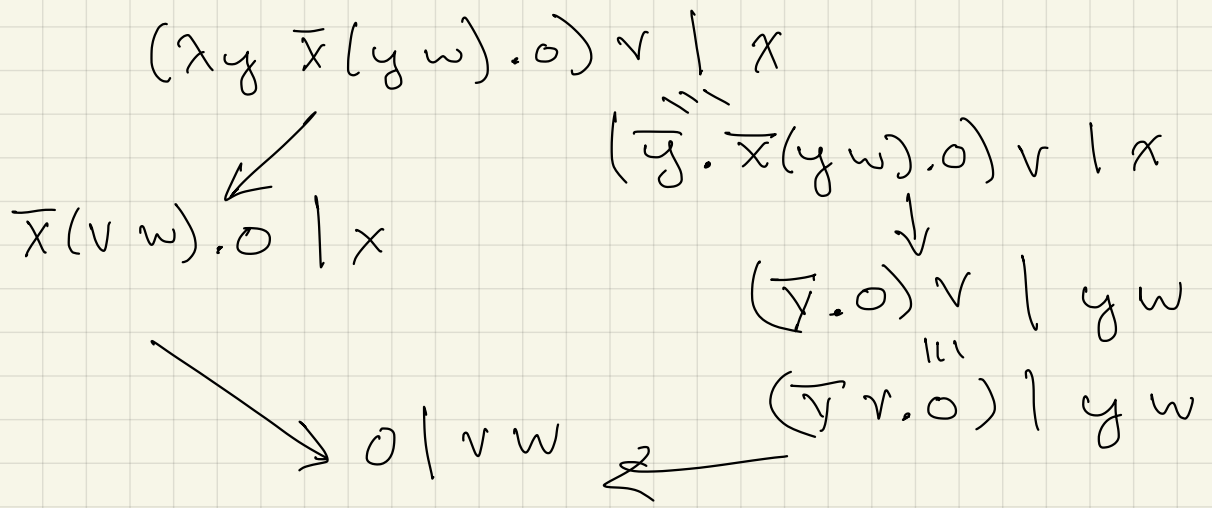 (λy x̅(y w).0) v | x
≡
(y̅.x̅(y w).0) v | x
x̅(v w).0 | x
(y̅.0) v | y w
≡
(y̅ v.0) | y w
0 | v w